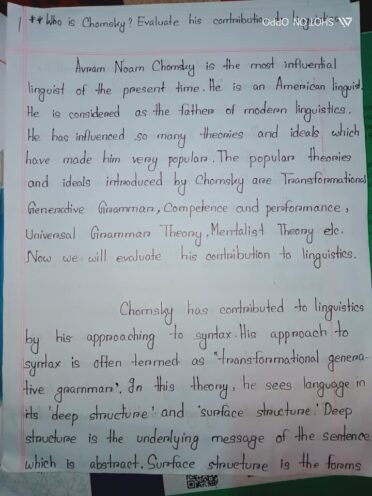 1 ** Who is Chomsky? Evaluate his contribution to linguistics
SHOT ON OPPO
Avram Noam Chomsky is the most influential
linguist of the present time. He is an American linguist.
He is considered as the father of modern linguistics.
He has influenced so many theories and ideals which
have made him very popular. The popular theories
and ideals introduced by Chomsky are Transformational
Generative Grammar, Competence and performance,
Universal Grammar Theory, Mentalist Theory etc.
Now we will evaluate his contribution to linguistics.
Chomsky has contributed to linguistics
by his approaching to syntax. His approach to
syntax is often termed as "transformational genera-
tive grammar'. In this theory, he sees language in
its 'deep structure' and 'surface structure.' Deep
structure is the underlying message of the sentence
which is abstract. Surface structure is the forms